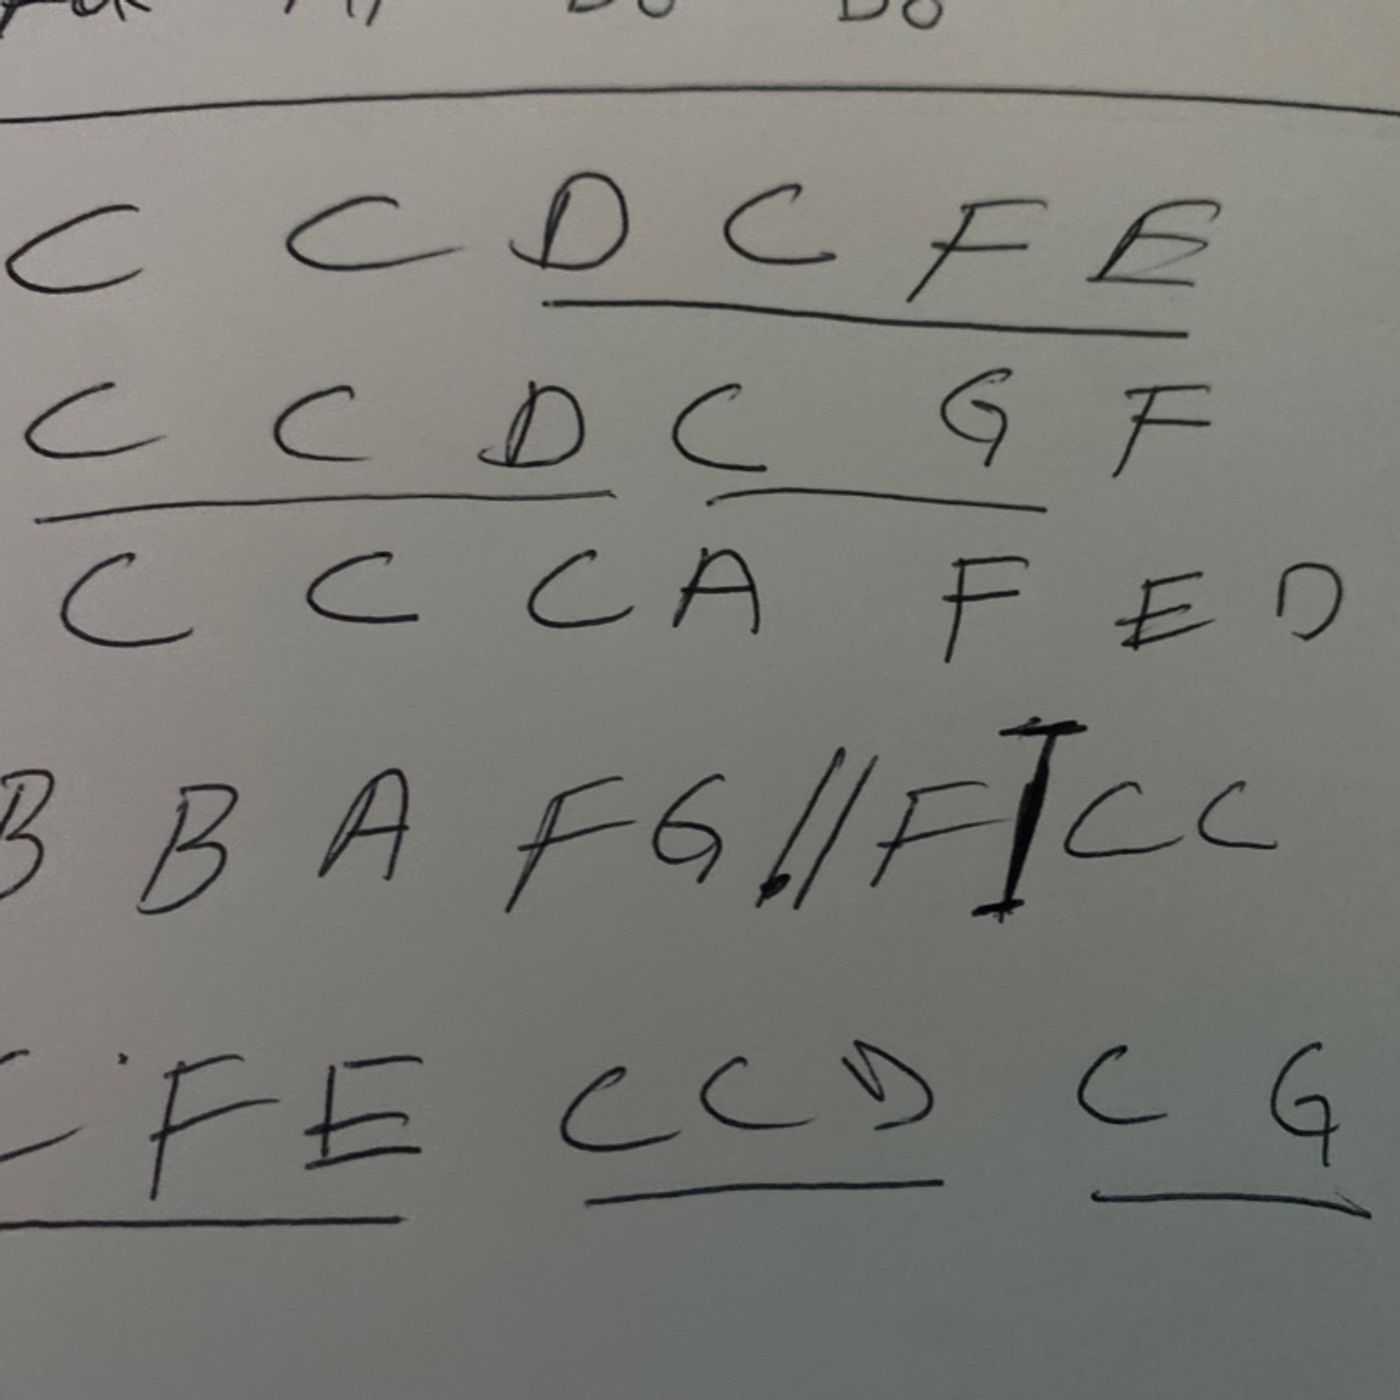 C C D C F E
C C D C G F
C C C A F E D
B B A F G // F I C C
C F E C C D C G